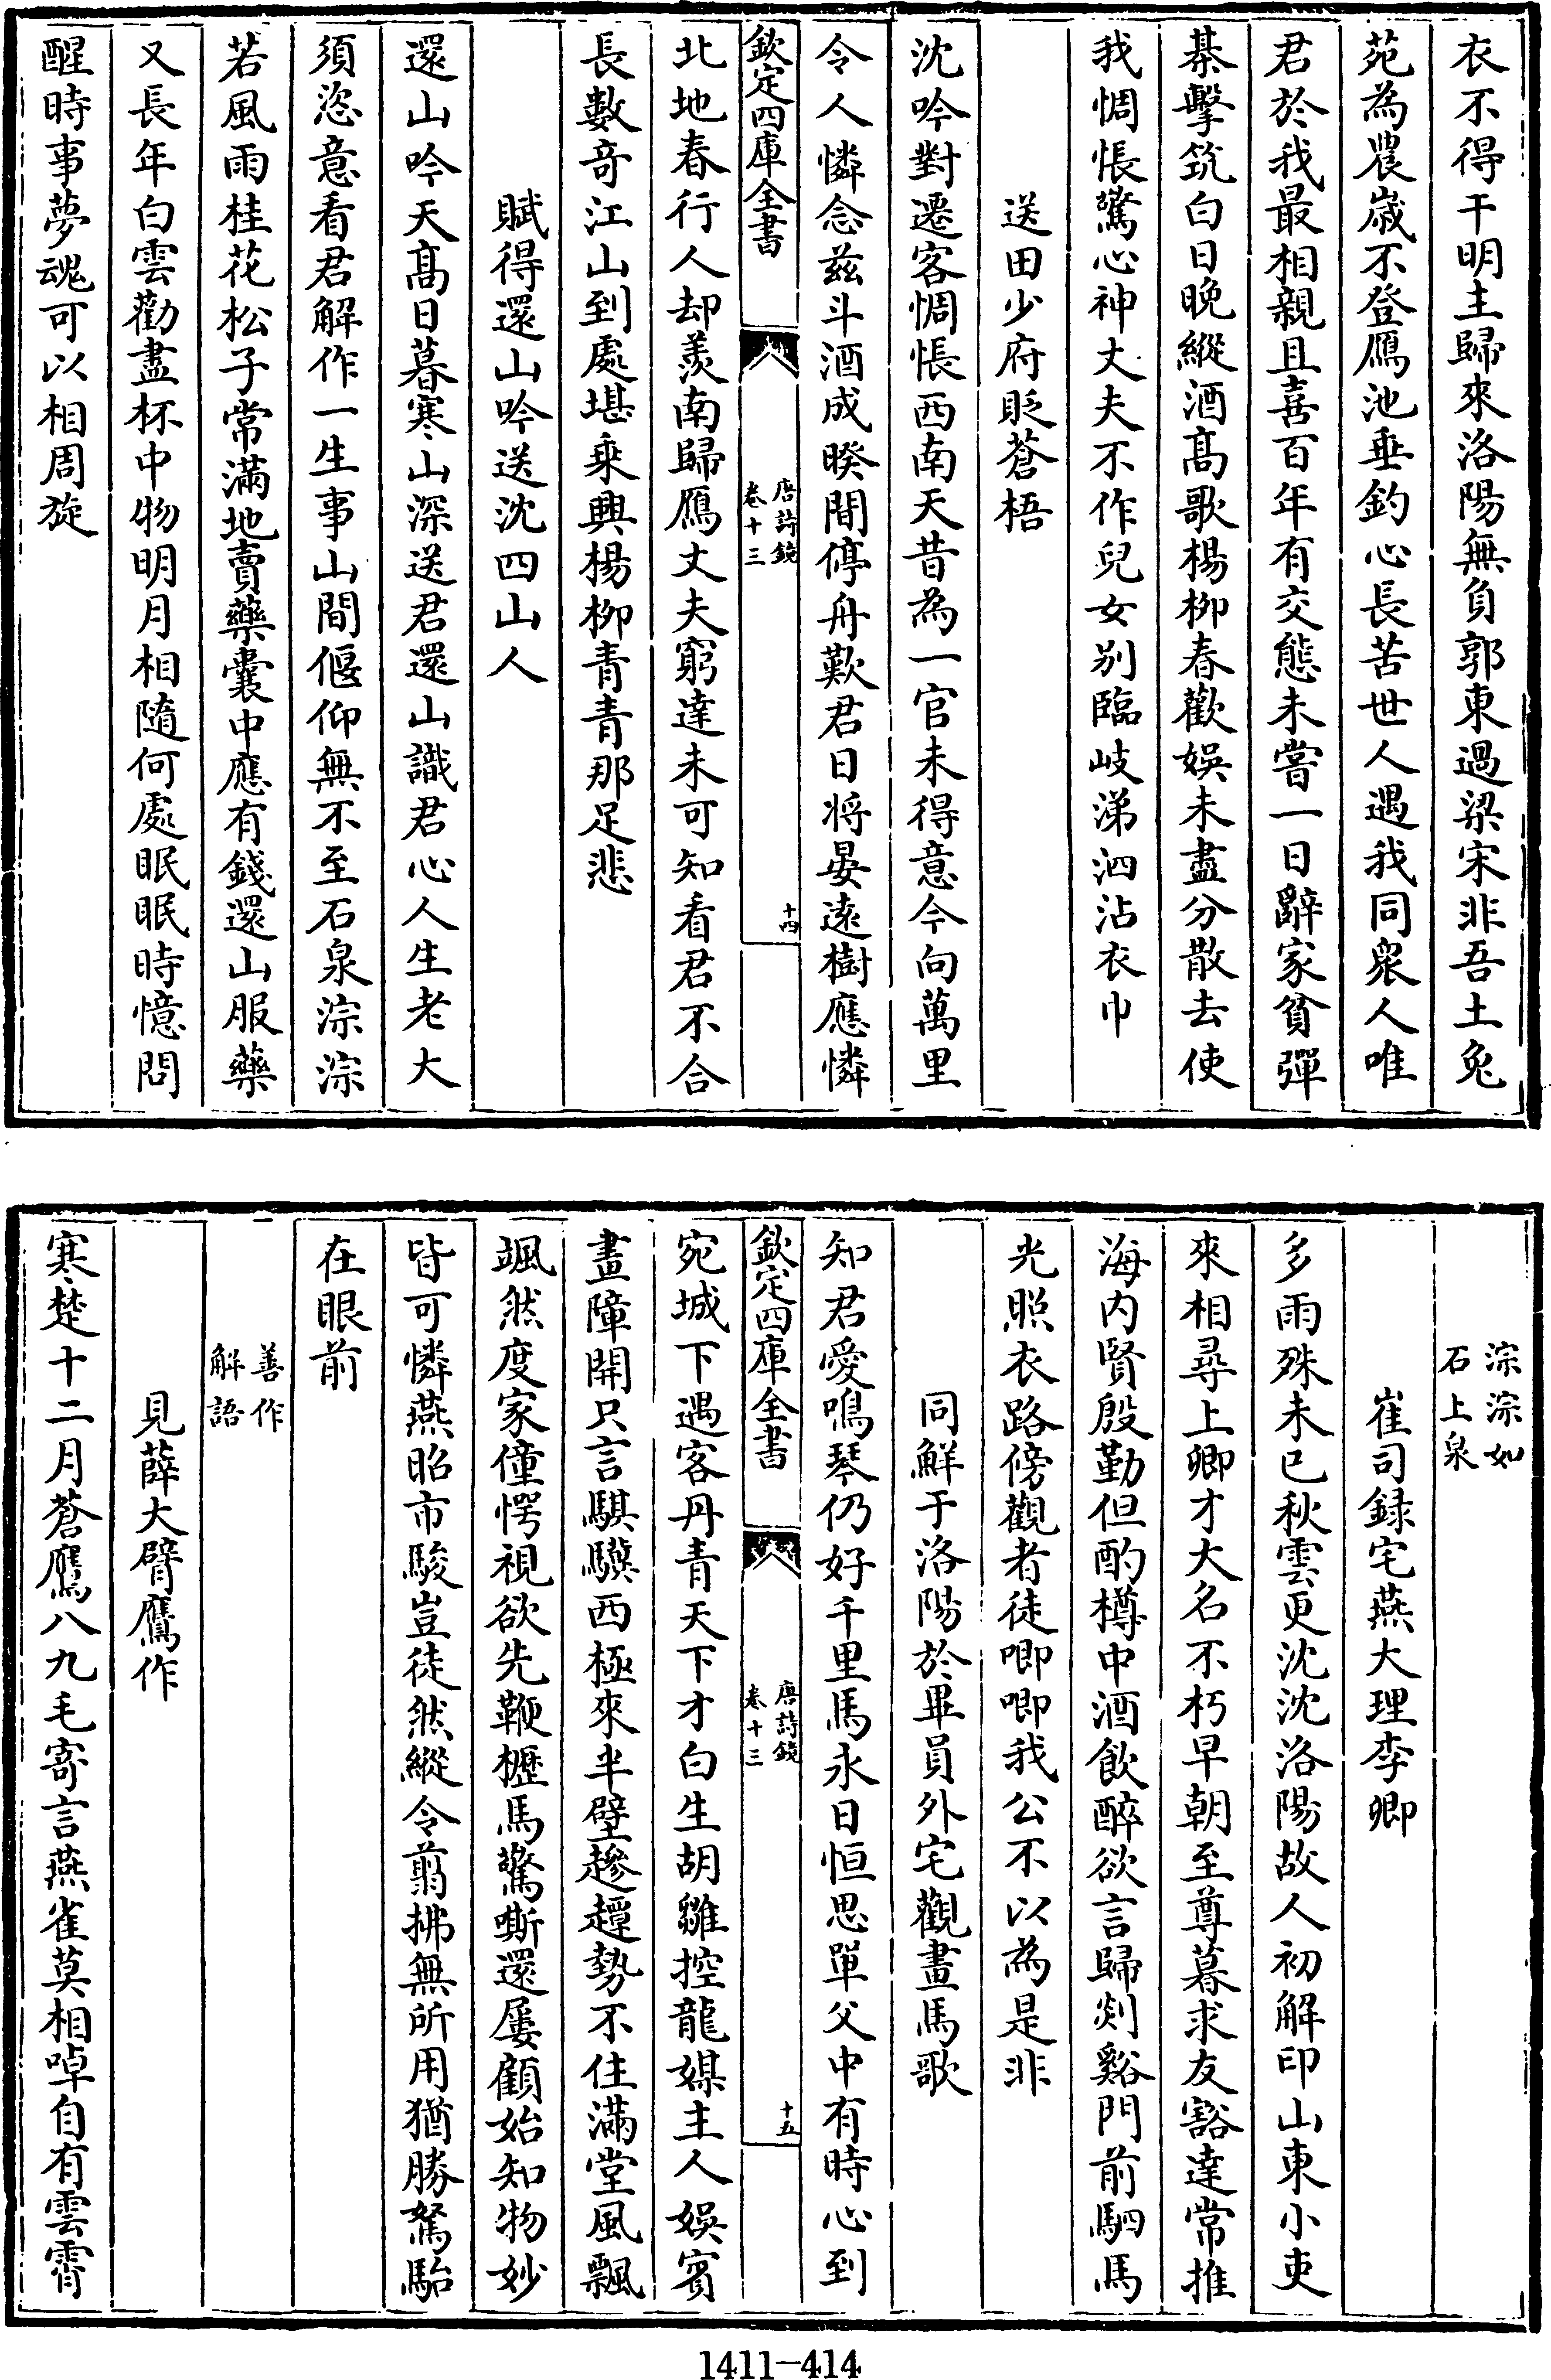 衣不得干明主歸來洛陽無負郭東過梁宋非吾土兔
苑為農歳不登鴈池垂釣心長苦世人遇我同衆人唯
君於我最相親且喜百年有交態未嘗一日辭家貧彈
棊擊筑白日晚縱酒髙歌楊柳春歡娛未盡分散去使
我惆悵驚心神丈夫不作兒女别臨岐涕泗沾衣巾
送田少府貶蒼梧
沈吟對遷客惆悵西南天昔為一官未得意今向萬里
令人憐念兹斗酒成暌間停舟歎君日将晏逺樹應憐
欽定四庫全書
唐詩鏡
卷十三
十四
北地春行人却羨南歸鴈丈夫窮達未可知看君不合
長數奇江山到處堪乘興楊柳青青那足悲
賦得還山吟送沈四山人
還山吟天髙日暮寒山深送君還山識君心人生老大
須恣意看君解作一生事山間偃仰無不至石泉淙淙
若風雨桂花松子常滿地賣藥囊中應有錢還山服藥
又長年白雲勸盡杯中物明月相隨何處眠眠時憶問
醒時事夢魂可以相周旋
淙淙如
石上泉
崔司録宅燕大理李卿
多雨殊未已秋雲更沈沈洛陽故人初解印山東小吏
來相尋上卿才大名不朽早朝至尊暮求友豁達常推
海内賢殷勤但酌樽中酒飲醉欲言歸剡谿門前駟馬
光照衣路傍觀者徒唧唧我公不以為是非
同鮮于洛陽於畢員外宅觀畫馬歌
知君愛鳴琴仍好千里馬永日恒思單父中有時心到
欽定四庫全書
唐詩鏡
卷十三
十五
宛城下遇客丹青天下才白生胡雛控龍媒主人娛賓
畫障開只言騏驥西極來半壁趁䟢勢不住滿堂風飄
颯然度家僮愕視欲先鞭櫪馬驚嘶還屢顧始知物妙
皆可憐燕昭市駿豈徒然縱令翦拂無所用猶勝駑駘
在眼前
善作
解語
見薛大臂鷹作
寒楚十二月蒼鷹八九毛寄言燕雀莫相啅自有雲霄
1411—414